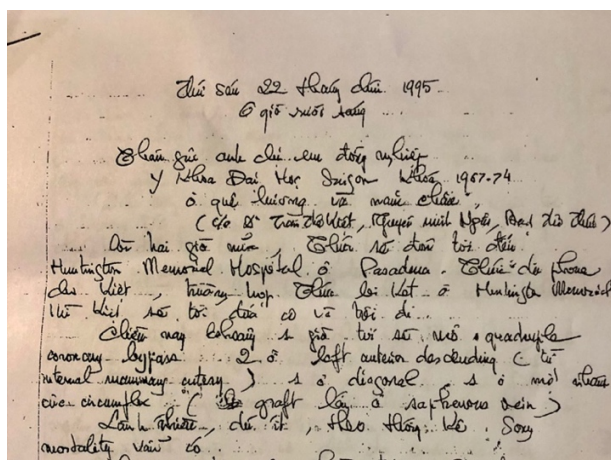 Thứ sáu 22 tháng chín 1995
6 giờ rưỡi sáng
Thân gửi anh chị em đồng nghiệp
Y Khoa Đại Học Saigon Khóa 1967-74
ở quê hương và năm châu
(c/o BS Trần Kiệt, Nguyễn minh Ngọc,
Còn hai giờ nữa, Thức sẽ đưa tôi đến
Huntington Memorial Hospital ở Pasadena. Thức phone
cho Kiệt, trường hợp Thức bị kẹt ở Huntington Memorial
thì Kiệt sẽ tới đưa cô về
Chiều nay khoảng 1 giờ tôi sẽ mổ quadruple
coronary bypass 2 ở left anterior descending (từ
internal mammary artery) 1 ở diagonal, 1 ở một nhánh
của circumflex (graft lấy ở saphenous vein)
Lành nhiều, dữ ít, theo thống kê. Song
mortality vẫn có